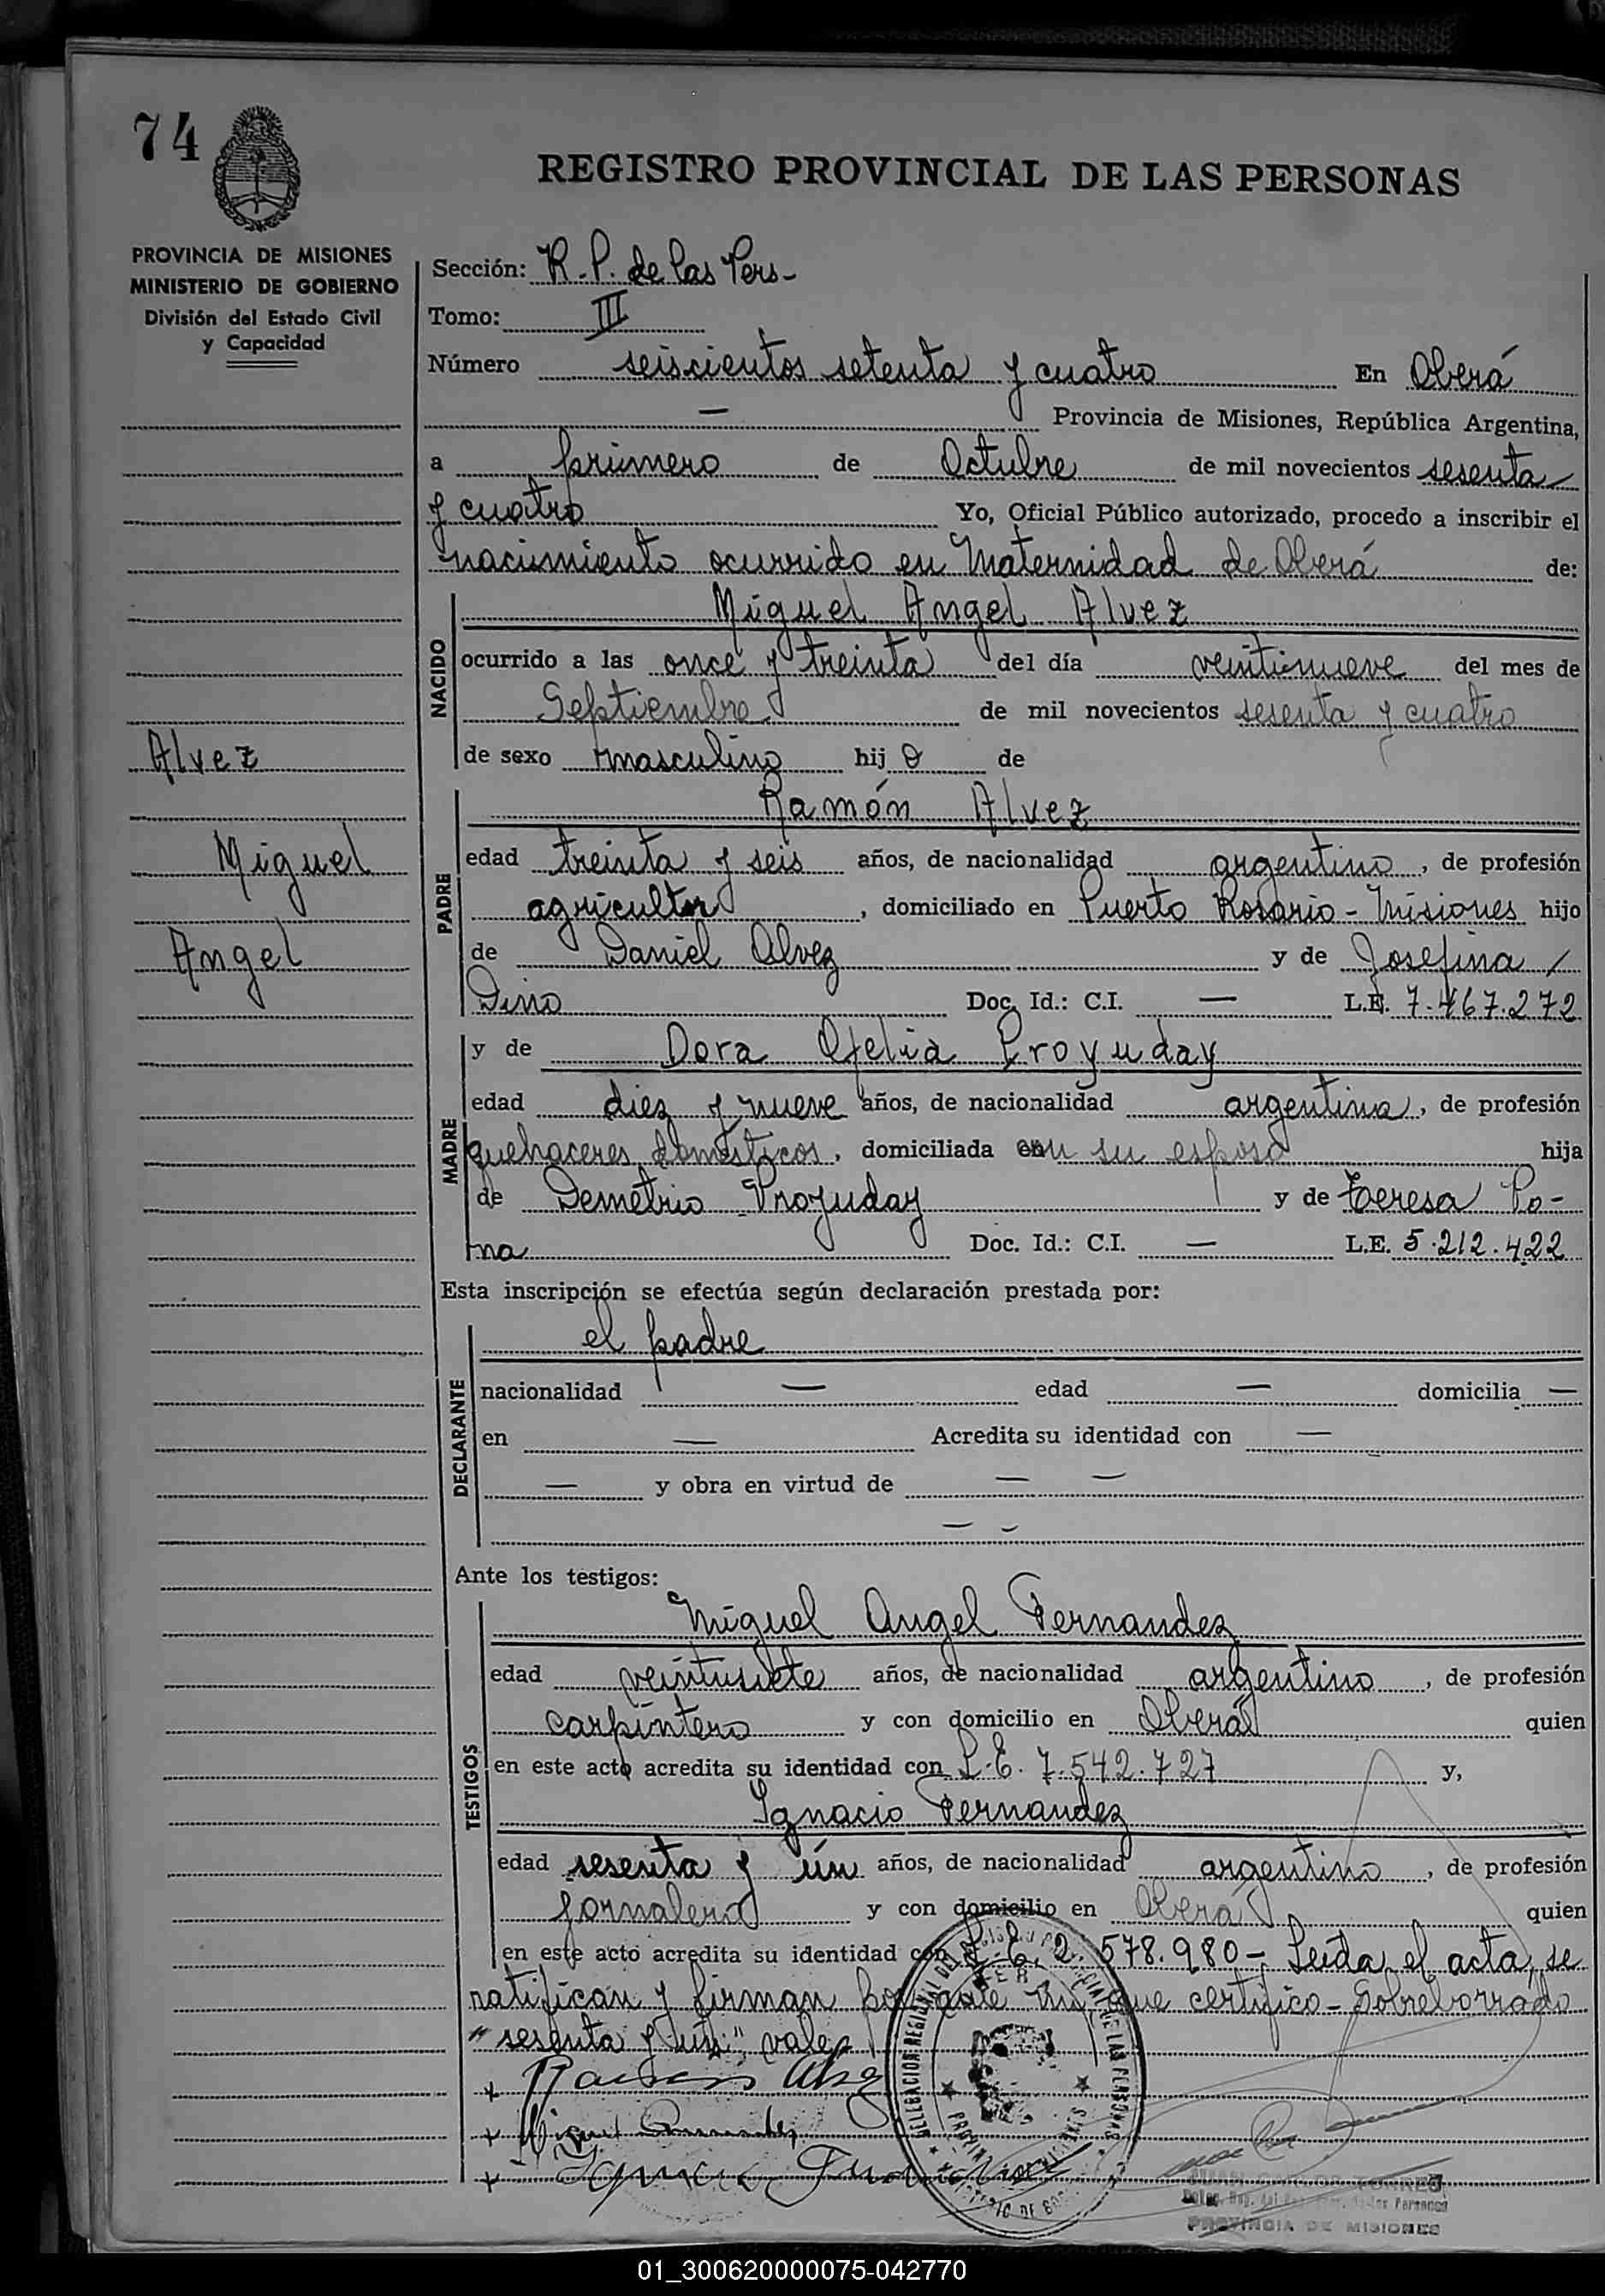 74
REGISTRO PROVINCIAL DE LAS PERSONAS
PROVINCIA DE MISIONES
MINISTERIO DE GOBIERNO
División del Estado Civil
y Capacidad
Sección: R.P. de las Pers-
Tomo: III
Número seiscientos setenta y cuatro En Oberá
— Provincia de Misiones, República Argentina,
a primero de Octubre de mil novecientos sesenta
y cuatro Yo, Oficial Público autorizado, procedo a inscribir el
nacimiento ocurrido en Maternidad de Oberá de:
NACIDO
Miguel Angel Alvez
ocurrido a las once y treinta del día veintinueve del mes de
Septiembre de mil novecientos sesenta y cuatro
de sexo masculino hij o de
Alvez
Miguel
Angel
PADRE
Ramón Alvez
edad treinta y seis años, de nacionalidad argentino, de profesión
agricultor, domiciliado en Puerto Rosario - Misiones hijo
de Daniel Alvez y de Josefina /
Dino Doc. Id.: C.I. — L.E. 7.467.272
MADRE
y de Dora Ofelia Proyuday
edad diez y nueve años, de nacionalidad argentina, de profesión
quehaceres domésticos, domiciliada con su esposo hija
de Demetrio Proyuday y de Teresa Po-
na Doc. Id.: C.I. — L.E. 5.212.422
Esta inscripción se efectúa según declaración prestada por:
DECLARANTE
el padre
nacionalidad — edad — domicilia —
en — Acredita su identidad con —
— y obra en virtud de — —
— —
Ante los testigos:
TESTIGOS
Miguel Angel Fernandez
edad veintisiete años, de nacionalidad argentino, de profesión
carpintero y con domicilio en Oberá quien
en este acto acredita su identidad con L.E. 7.542.727 y,
Ignacio Fernandez
edad sesenta y ún años, de nacionalidad argentino, de profesión
jornalero y con domicilio en Oberá quien
en este acto acredita su identidad con L.E. 2.578.980- Leída el acta, se
ratifican y firman por ante mí, que certifico - Sobreborrado
"sesenta y ún" vale
+ Ramon Alvez
+ Miguel Fernandez
+ Ignacio Fernandez
DELEGACION REGIONAL DEL REGISTRO PROVINCIAL DE LAS PERSONAS
OBERA
PROVINCIA DE MISIONES
MINISTERIO DE GOBIERNO
TORRES
PROVINCIA DE MISIONES
01_300620000075-042770